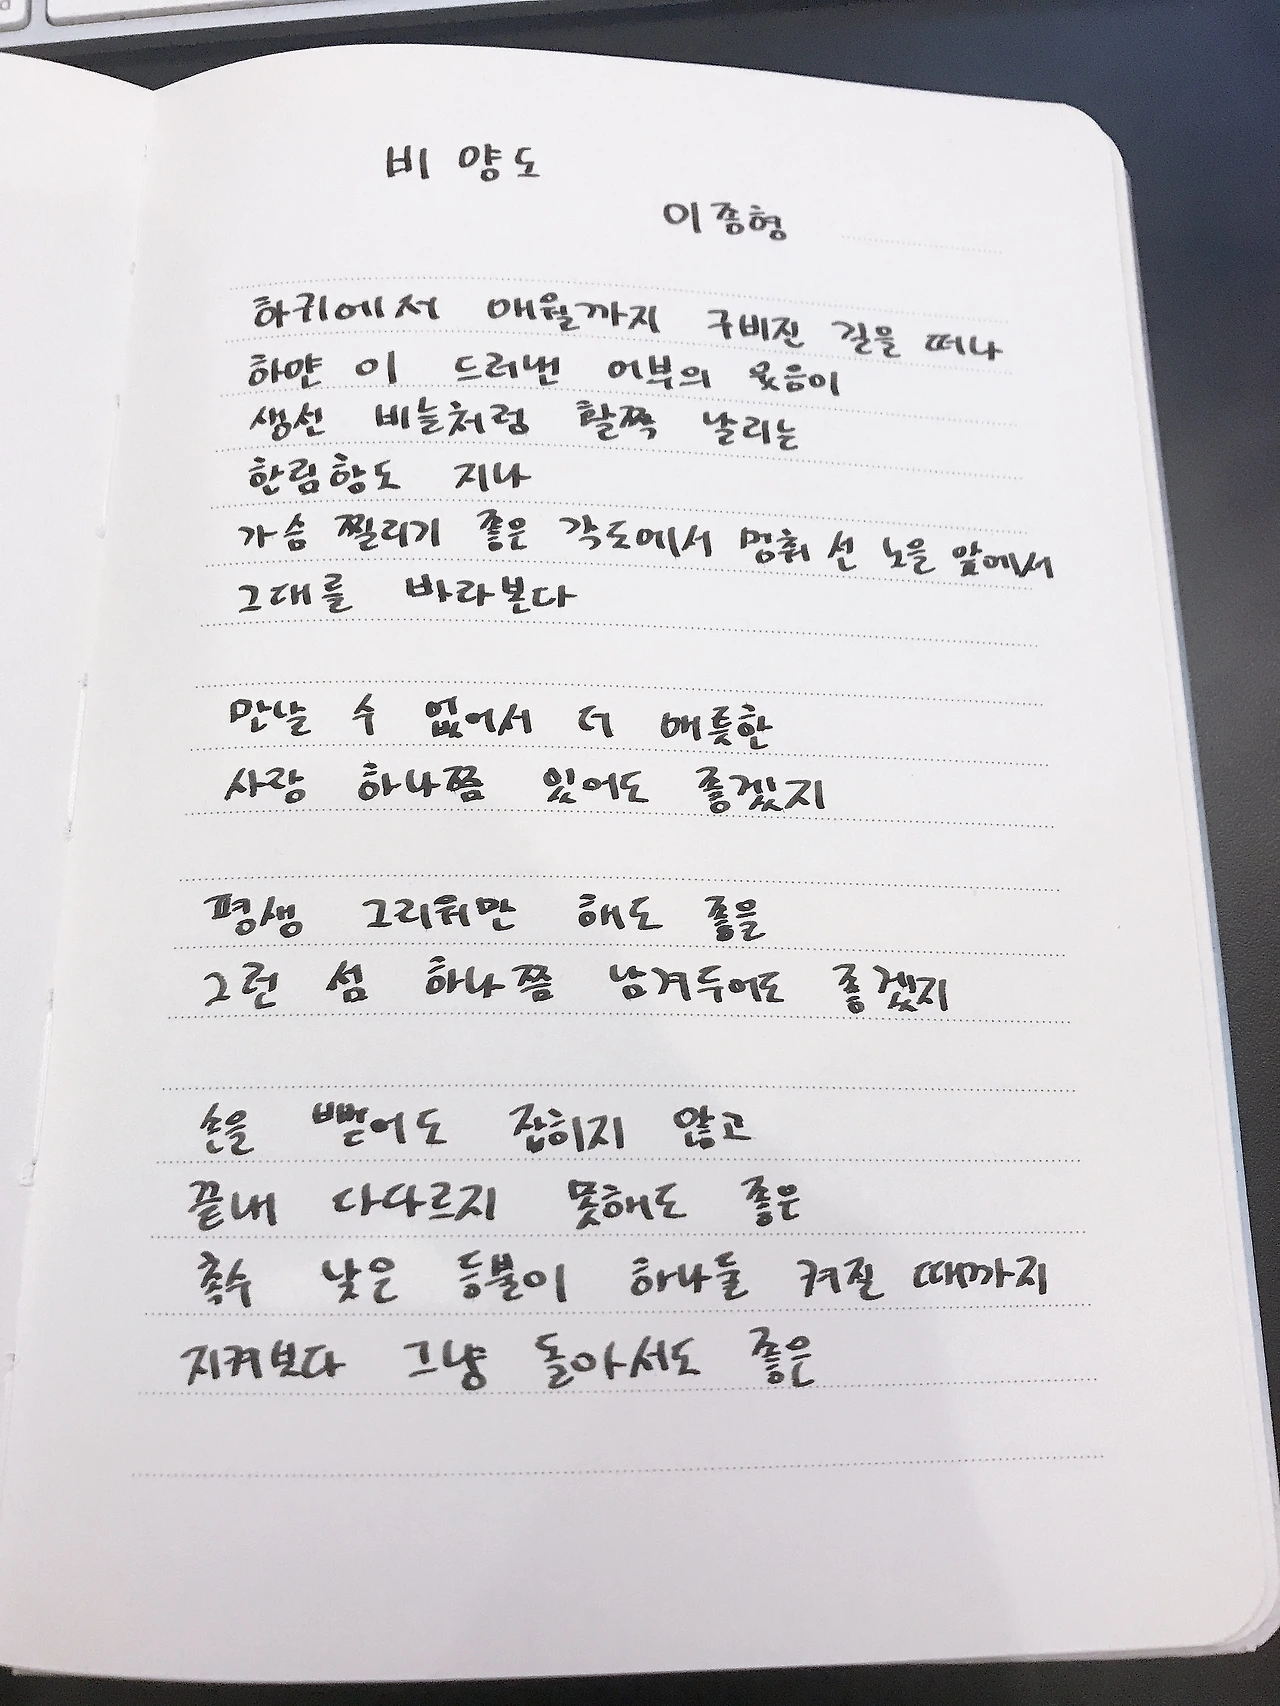 비양도
이종형
하귀에서 애월까지 구비진 길을 떠나
하얀 이 드러낸 어부의 웃음이
생선 비늘처럼 활짝 날리는
한림항도 지나
가슴 찔리기 좋은 각도에서 멈춰 선 노을 앞에서
그대를 바라본다
만날 수 없어서 더 애틋한
사랑 하나쯤 있어도 좋겠지
평생 그리워만 해도 좋을
그런 섬 하나쯤 남겨두어도 좋겠지
손을 뻗어도 잡히지 않고
끝내 다다르지 못해도 좋은
촉수 낮은 등불이 하나둘 켜질 때까지
지켜보다 그냥 돌아서도 좋은